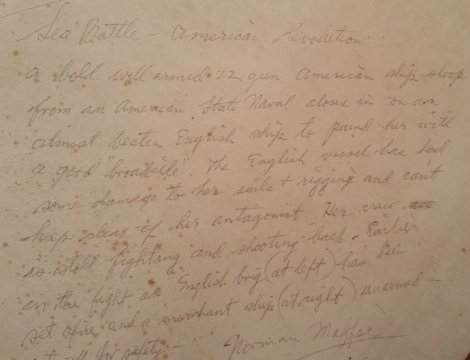 Sea Battle - American Revolution
A bold well armed 22 gun American ship sloop
from an American State Naval closes in on an
almost beaten English ship to pound her with
a good "broadside". The English vessel has had
some damage to her sails & rigging and can't
keep abeas of her antagonist. Her crew
is still fighting and shooting back. Earlier
on the fight an English brig (at left) has been
set afire and a merchant ship (at right) unarmed -
sail for safety -
Norman Maffei